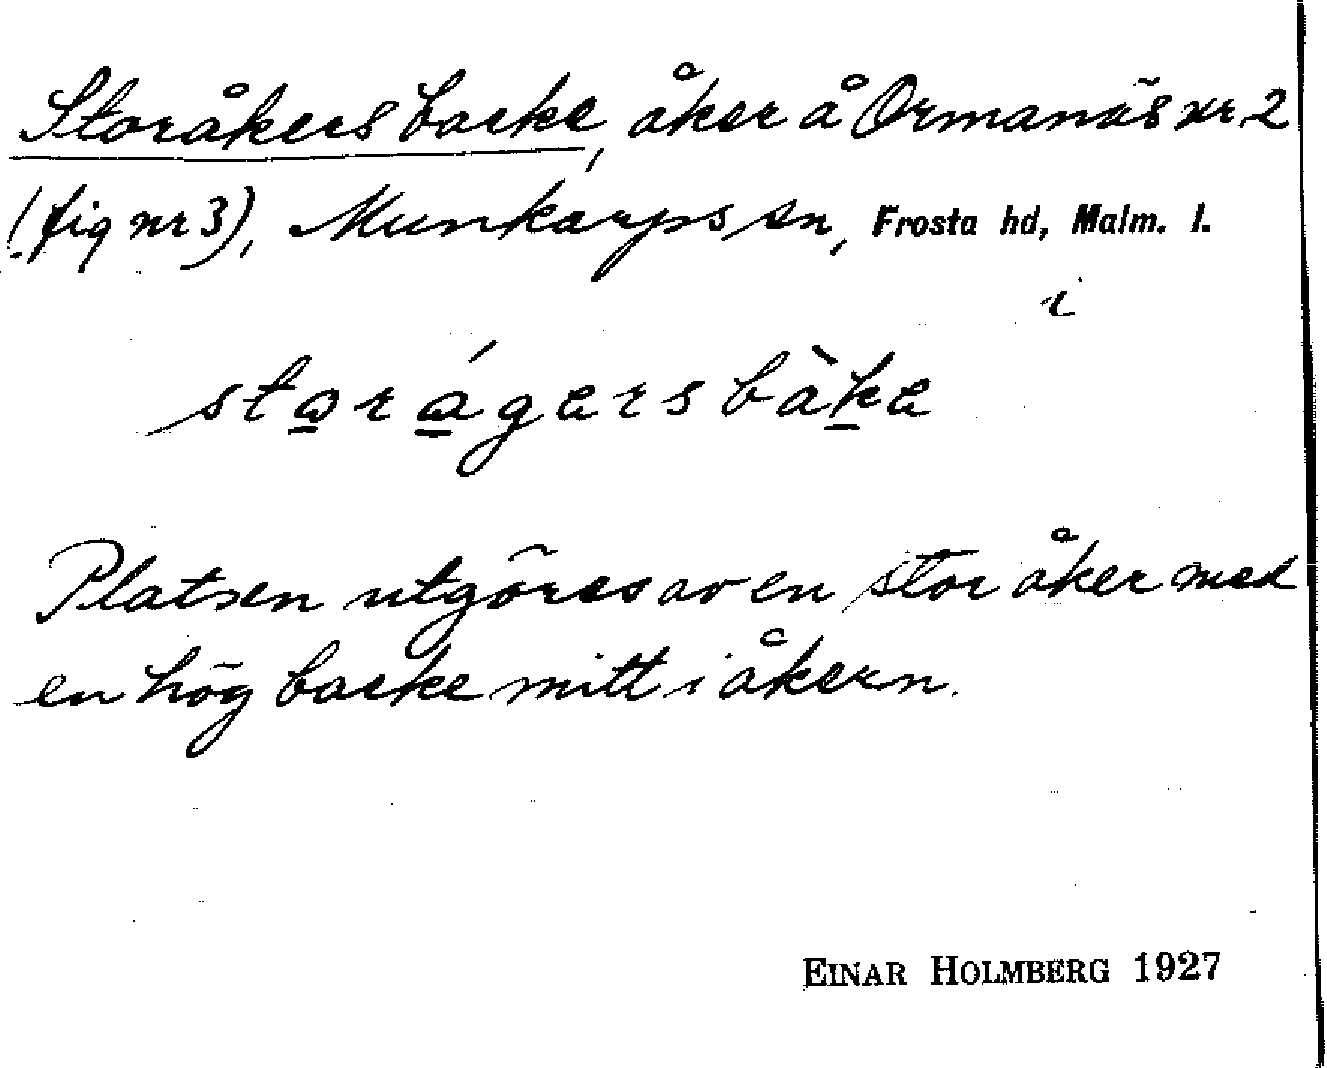 Storåkers backe, åker å Ormanäs nr 2
(fig nr 3), Munkarps sn, Frosta hd, Malm. l.
i
storágersbàke
Platsen utgöres av en stor åker med
en hög backe mitt i åkern.
EINAR HOLMBERG 1927